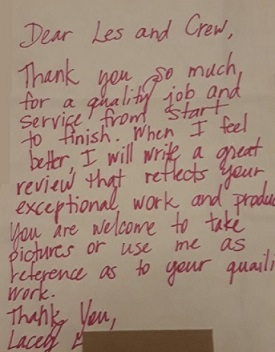 Dear Les and Crew,
Thank you so much
for a quality job and
service from start
to finish. When I feel
better, I will write a great
review that reflects your
exceptional work and produc
You are welcome to take
pictures or use me as
reference as to your quaili
work.
Thank You,
Lacey